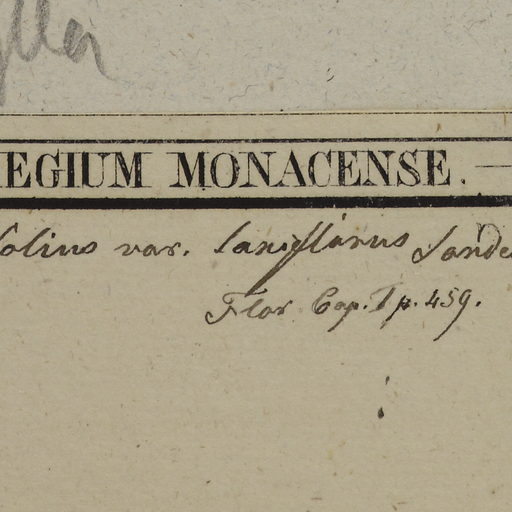 EGIUM MONACENSE. —
folius var. laxiflorus Sonde
Flor Cap. I p. 459.